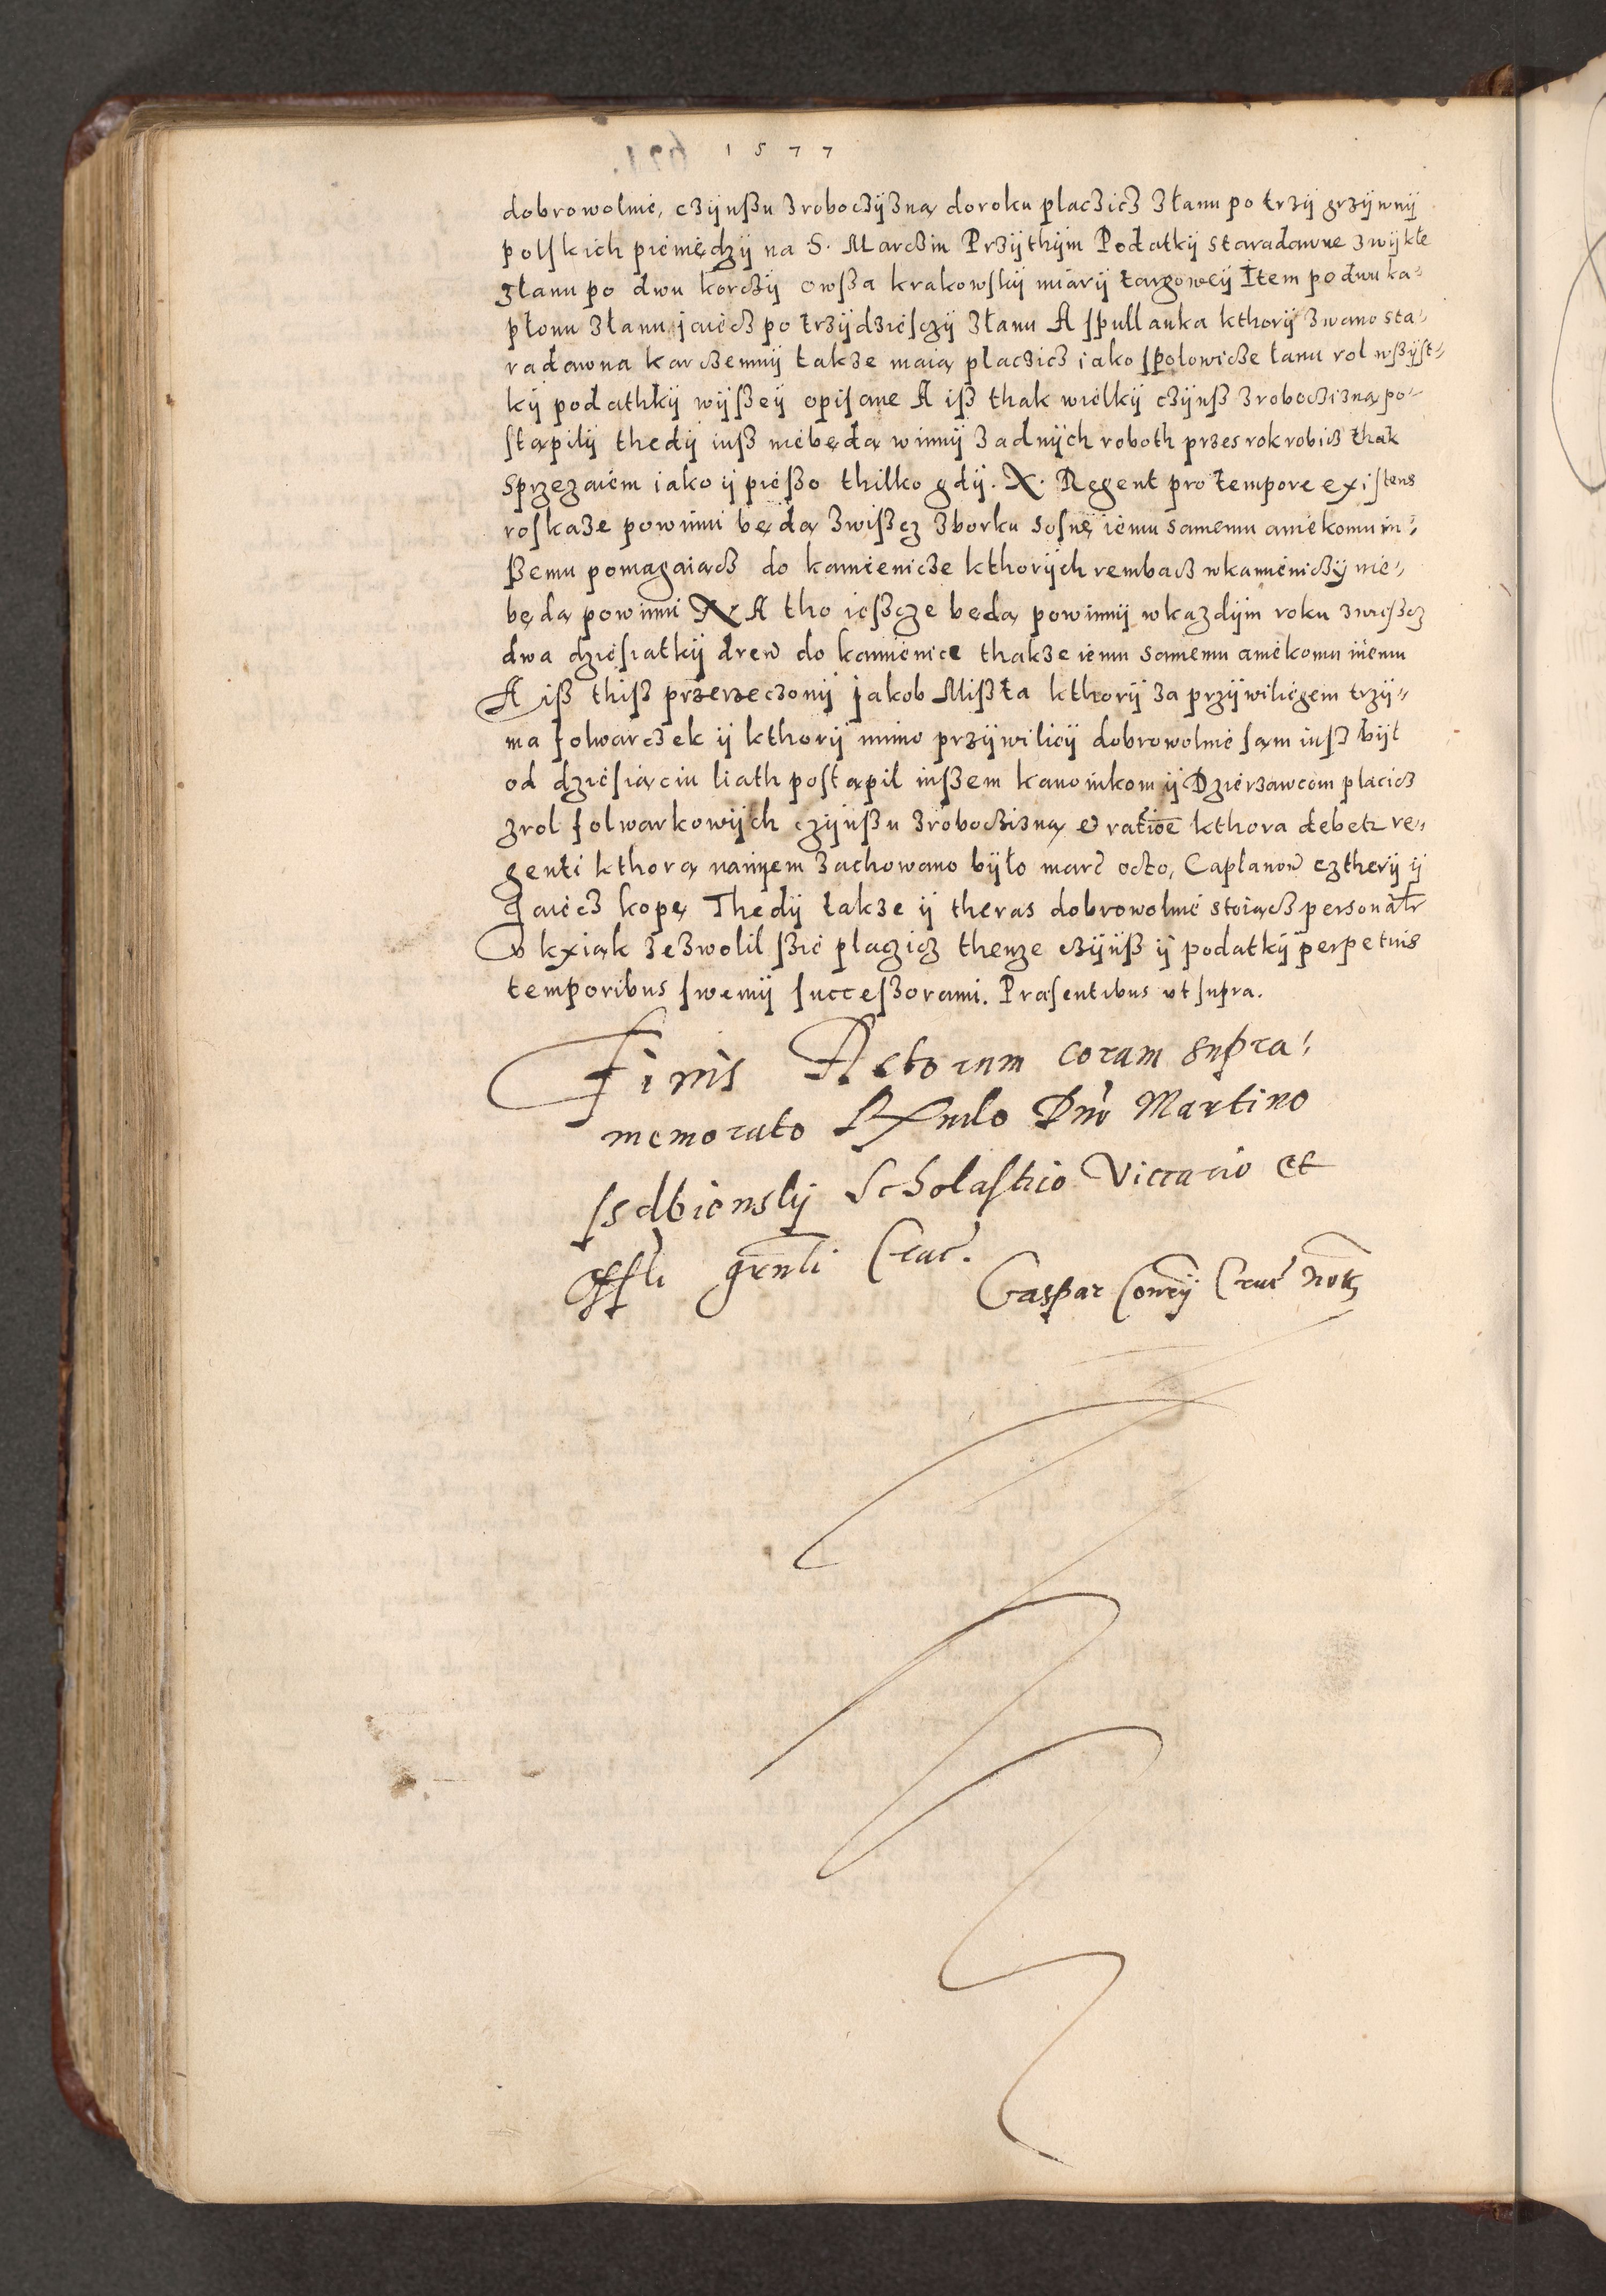 1577
dobrowolnie, czÿnßu zroboczÿzną doroku placzicz złanu po trzÿ grzÿwnÿ
polſkich pieniędzÿ na S. Marczin Przÿthÿm Podatkÿ staradawne zwÿkłe
złanu po dwu korczÿ owßa krakowſkÿ miarÿ targoweÿ Item po dwu ka-
płonu złanu jaiecz po trzÿdzieſczÿ złanu A ſpullanka kthorÿ zwano sta-
radawna karczemnÿ takze maią placzicz iako ſpolowicze łanu rol wßÿſt-
kÿ podathkÿ wÿßeÿ opiſane A iß thak wielkÿ czÿnß zroboczizną po-
ſtąpilÿ thedÿ iuß niebędą winnÿ zadnÿch roboth przes rok robicz thak
sprzezaiem iako ÿ pießo thilko gdÿ. X. Regent pro tempore exiſtens
roſkaze powinni będą zwißcz zborku soſnę iemu samemu aniekomu in-
ßemu pomagaiącz do kamienicze kthorÿch rembacz wkamieniczÿ nie-
będą powinni A tho ießcze będą powinnÿ wkazdÿm roku zwießcz
dwa dzieſiatkÿ drew do kamienice thakze iemu samemu aniekomu iñemu
A iß thiß przerzeczonÿ jakob Mißta kthorÿ za przÿwiliegem trzÿ-
ma folwarczek ÿ kthorÿ mimo przÿwilieÿ dobrowolnie ſąm iuß bÿł
od dzieſiąciu liath poſtąpil inßem kanonikom ÿ Dzierzawcom placicz
zrol folwarkowÿch czÿnßu zroboczizną & ratioe kthora debetr re-
genti kthorą nanÿem zachowano bÿło marc octo, Caplanow cztherÿ ÿ
Jaiecz kopę Thedÿ takze ÿ theras dobrowolnie stoiącz personalr
v kxiąk zezwolil ßie placzicz thenze czÿnß ÿ podatkÿ perpetuis
temporibus ſwemÿ ſucceßorami. Præsentibus vt ſupra.
Finis Actorum coram supra-
memorato Rndo Dno Martino
Isdbienskÿ Scholastico Viccario et
Offli gñrali Crac.
Caspar Conrÿ Crac Not